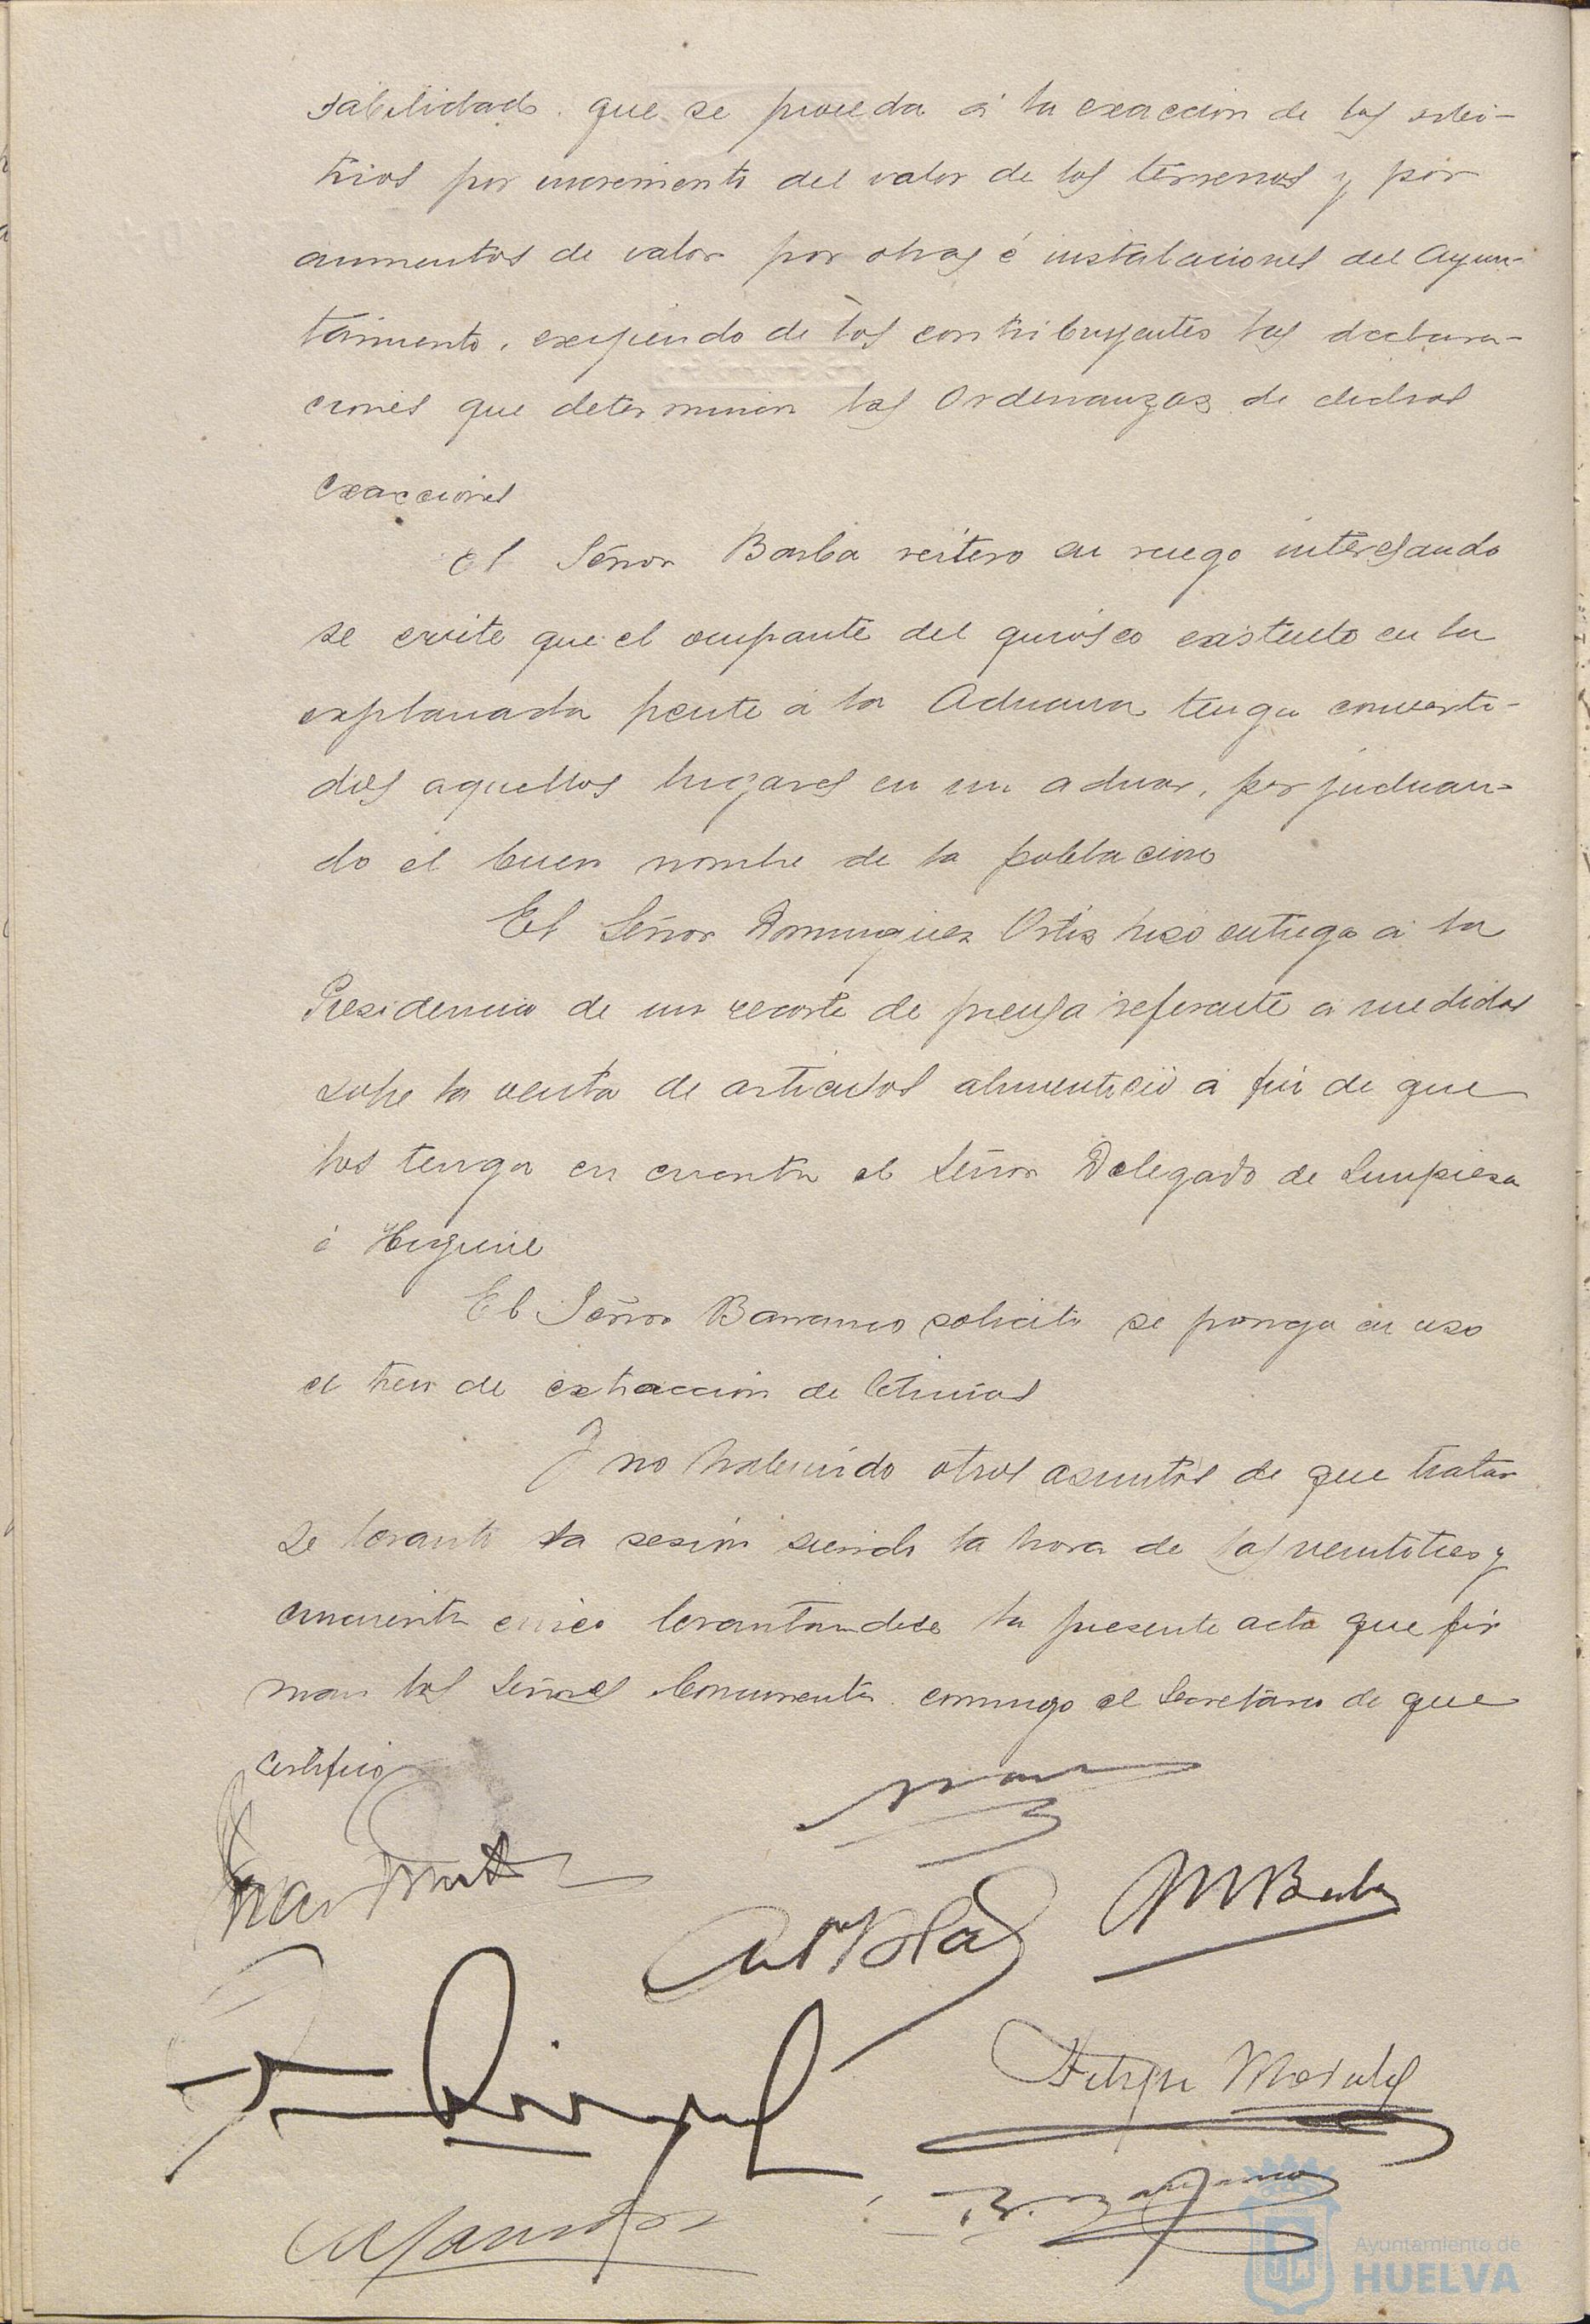 sabilidad. que se proceda á la exacción de los arbi-
trios por incremento del valor de los terrenos y por
aumentos de valor por obras é instalaciones del Ayun-
tamiento, exigiendo de los contribuyentes las declara-
ciones que determinan las Ordenanzas de dichas
exacciones
El Señor Barba reitero su ruego interesando
se evite que el ocupante del quiosco existente en la
explanada frente á la Aduana tenga converti-
dos aquellos lugares en un aduar, perjudican-
do el buen nombre de la poblacion
El Señor Dominguez Ortiz hizo entrega á la
Presidencia de un recorte de prensa referente a medidas
sobre la venta de articulos alimenticio á fin de que
los tenga en cuenta el Señor Delegado de Limpieza
é Higiene
El Señor Barranco solicito se ponga en uso
el tren de extraccion de letrinas
Y no habiendo otros asuntos de que tratar
se levanto la sesion siendo la hora de las veintitres y
cuarenta cinco levantandose la presente acta que fir
man los Señores Concurrentes conmigo el Secretario de que
certifico
M Barba
Felipe Morales
B. Barranco
Ayuntamiento de
HUELVA